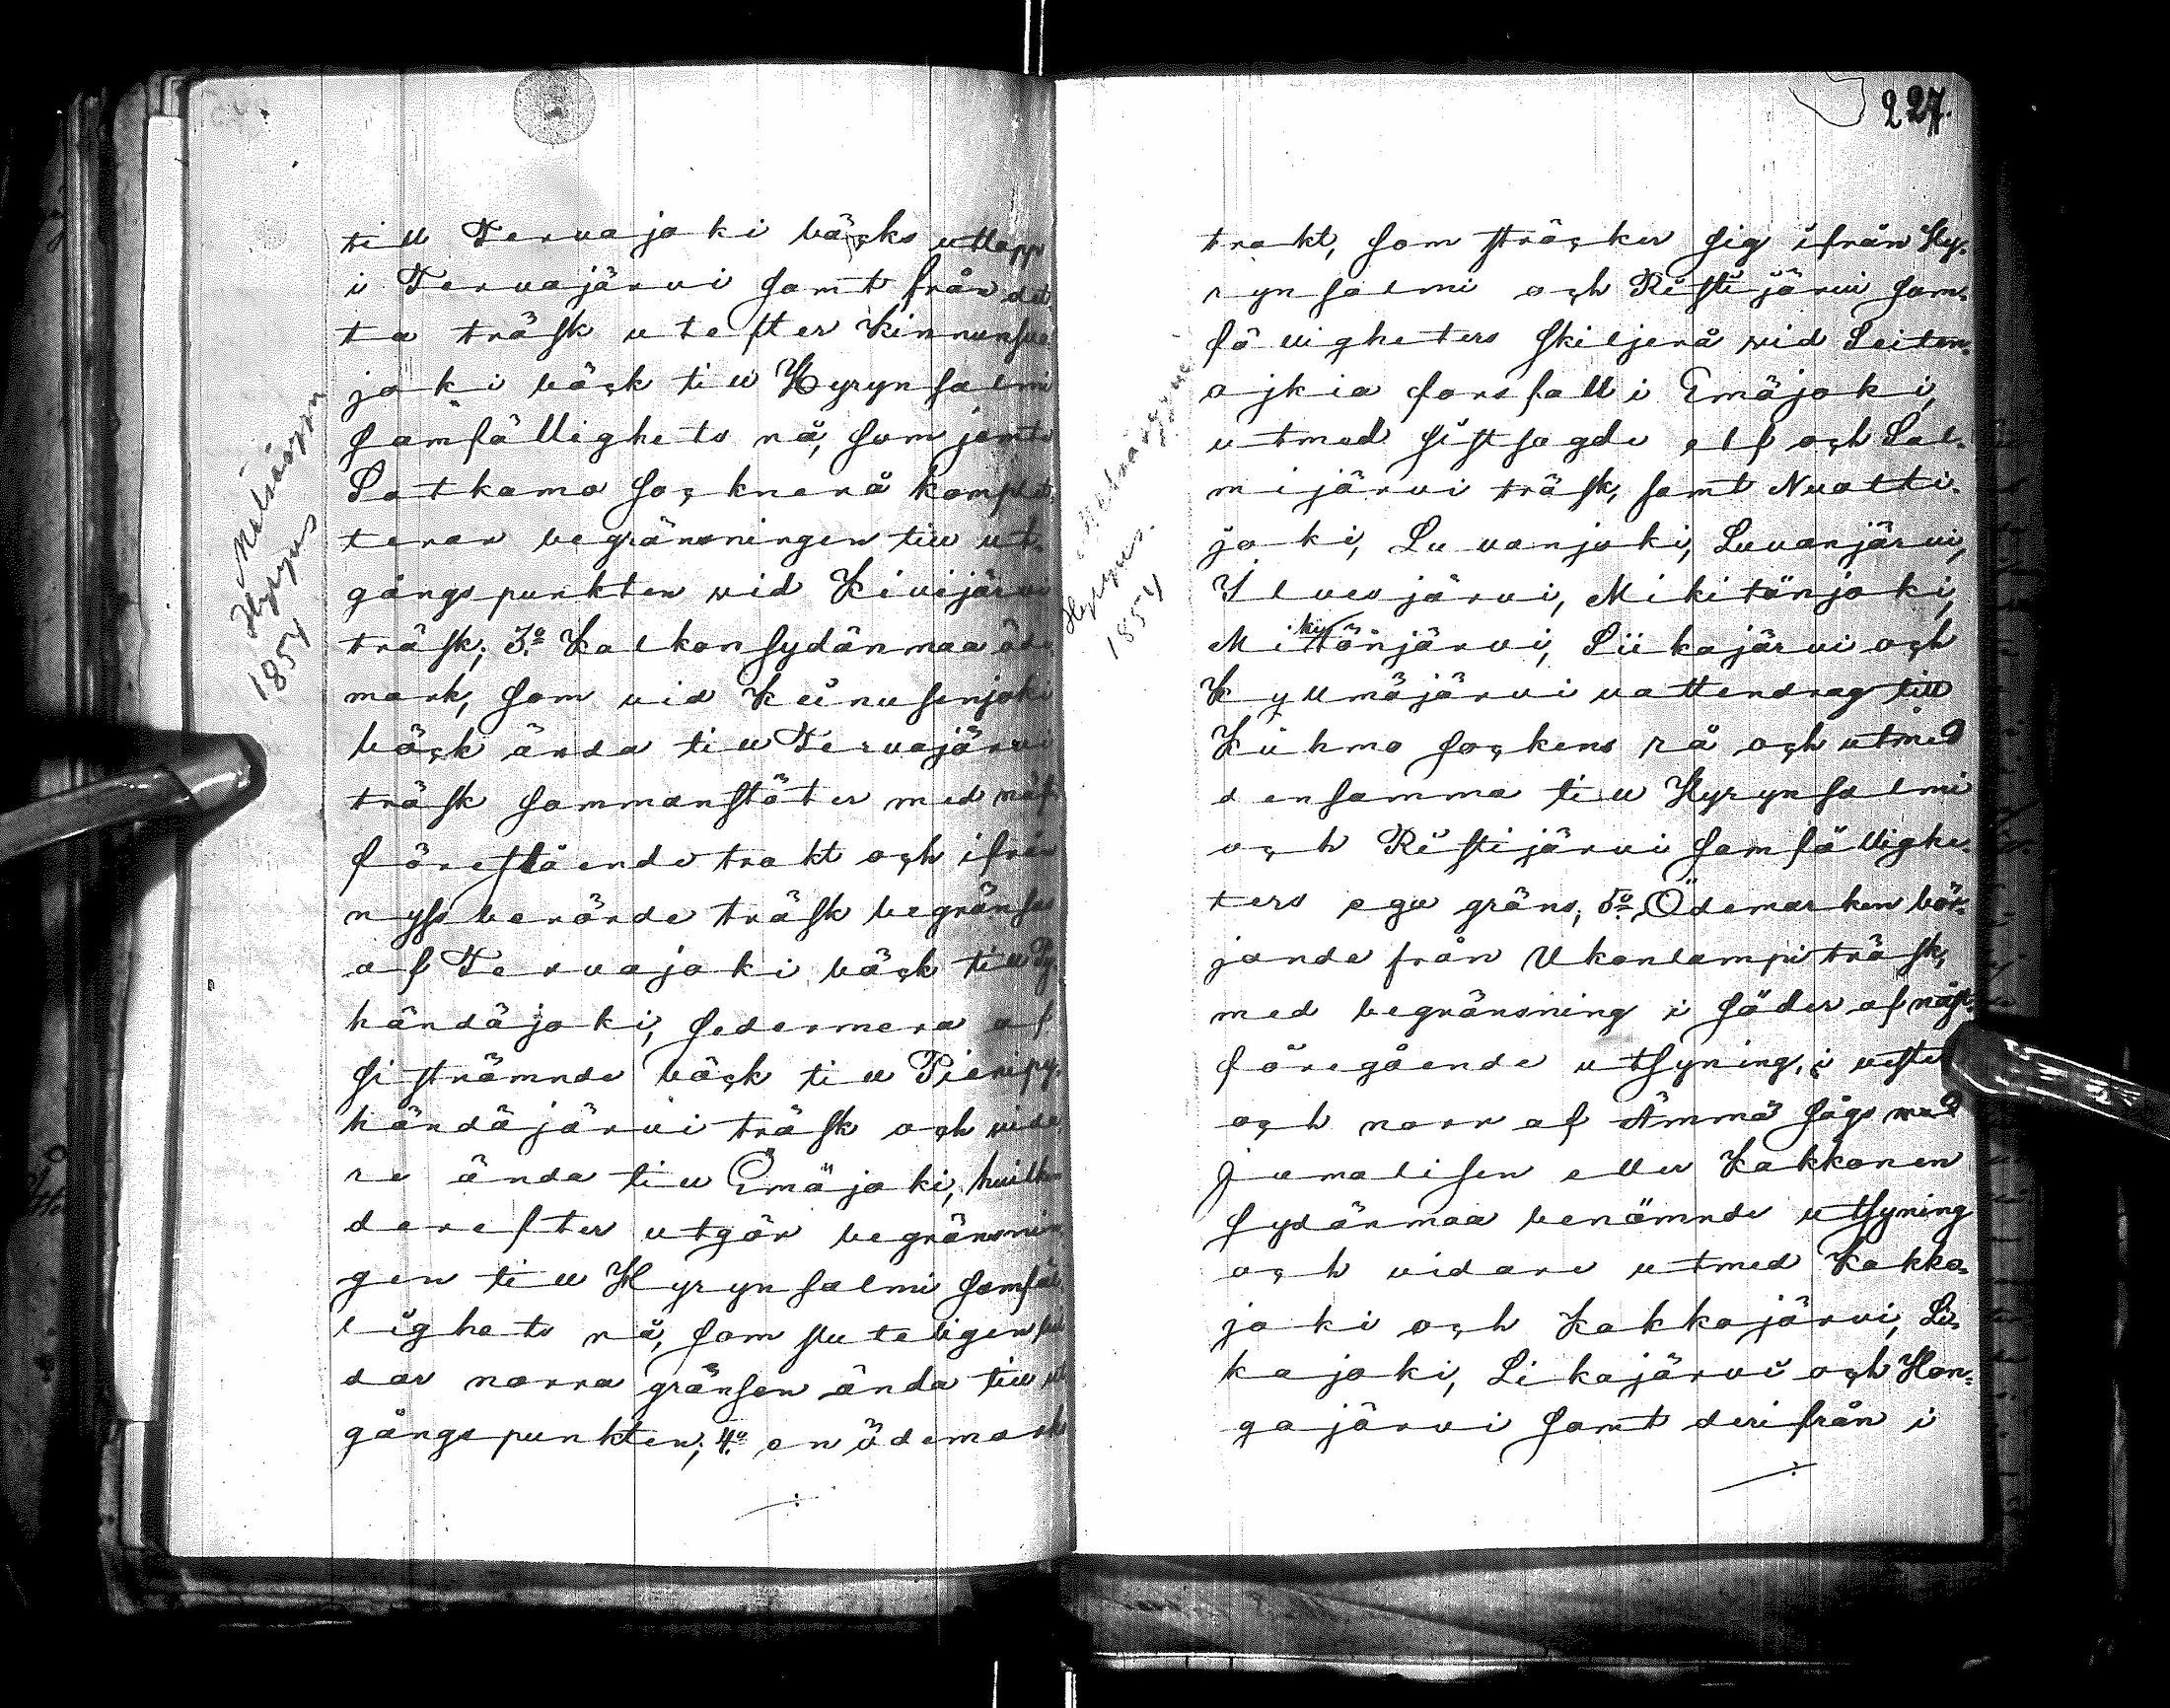 till Tervajoki bäcks utlopp
i Tervajärvi samt från det
ta träsk utefter Kinnunsuo
joki bäck till Hyrynsalmi
samfällighets rå, som jemte
Sotkamo socknerå komplet
terar begränsningen till ut-
gångspunkten vid Kivijärvi
träsk; 3:o Kalkonsydänmaa öde
mark, som vid Keinusenjoki
bäck ända till Tervajärvi
träsk sammanstöter med näst
förestående trakt och ifrån
nyss berörde träsk begränsas
af Tervajoki bäck till Py
händäjoki, sedermera af
sistnämnde bäck till Pienipy
händäjärvi träsk och vida
re ända till Emäjoki, hvilken
derefter utgör begränsnin
gen till Hyrynsalmi samfäl
lighets rå, som sluteligen
dar norra gränsen ända till ut
gångspunkten; 4:o en ödemark
Hyryns
1854
227.
trakt, som sträcker sig ifrån Hy-
rynsalmi och Ristijärvi sam-
fälligheters skiljerå vid Leiton-
ojkia forsfall i Emäjoki,
utmed sistsagde elf och Sal-
mijärvi träsk, samt Nuotti-
joki, Luvanjoki, Luvanjärvi,
Ilvesjärvi, Mikitänjoki,
Mikitänjärvi, Siikajärvi och
Kyllmäjärvi vattendrag till
Kuhmo sockens rå och utmed
densamma till Hyrynsalmi
och Ristijärvi samfällighe-
ters egu gräns; 5:o Ödemarken bör-
jande från Ukonlampi träsk,
med begränsning i söder af näst-
föregående utsyning, i vester
och norr af Ämmä sågs med
Jumalisen eller Kakkonen
sydänmaa benämnde utsyning
och vidare utmed Kakko-
joki och Kakkojärvi, Li-
kajoki, Likajärvi och Hon-
gajärvi samt derifrån i
Hyryns.
1854